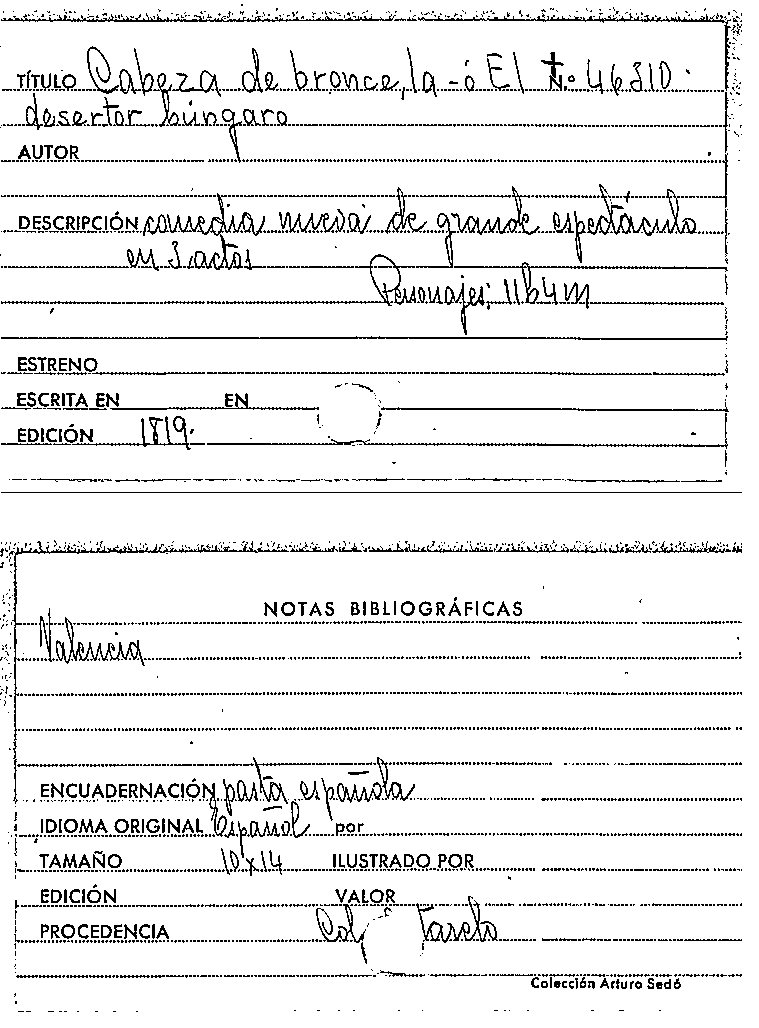 TÍTULO Cabeza de bronce, la - ó El t N.º 46310.
desertor húngaro
AUTOR
DESCRIPCIÓN comedia nueva de grande espectáculo
en 3 actos
Personajes: 11h4m
ESTRENO
ESCRITA EN EN
EDICIÓN 1819.
NOTAS BIBLIOGRÁFICAS
Valencia
ENCUADERNACIÓN pasta española
IDIOMA ORIGINAL Español por
TAMAÑO 10 x 14 ILUSTRADO POR
EDICIÓN VALOR
PROCEDENCIA Col.
Colección Arturo Sedó